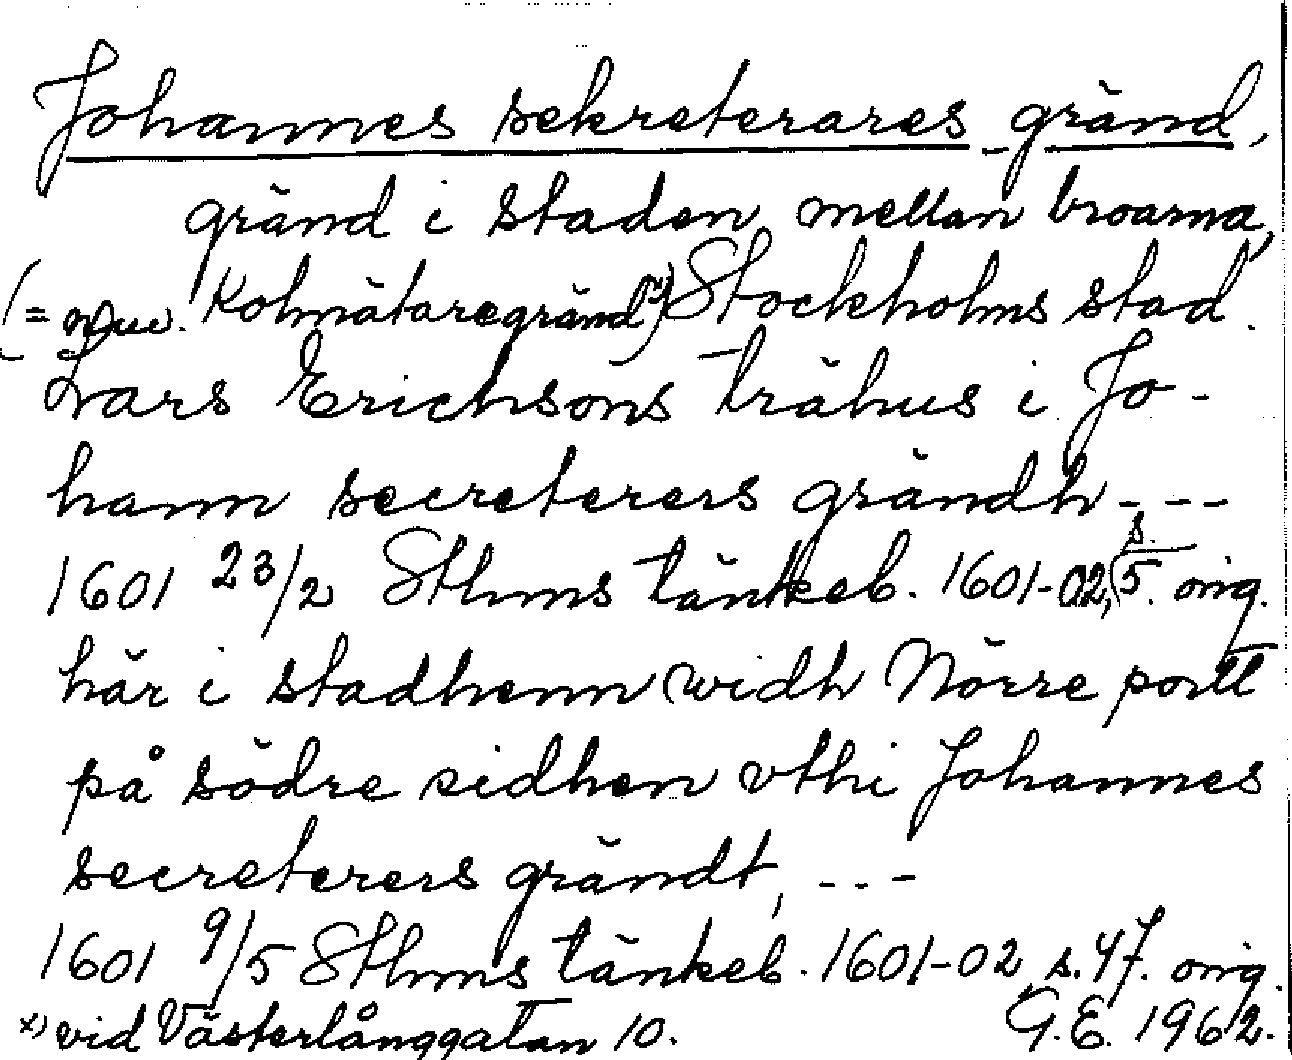 Johannes sekreterares gränd,
gränd i staden mellan broarna,
(= nuv. Kolmätaregränd x)) Stockholms stad.
Lars Erichsons trähus i Jo-
hann secreterers grändh - - -
1601 23/2 Sthms tänkeb. 1601-02, s. 5. orig.
här i stadhenn widh Nörre portt
på södre sidhen vthi Johannes
secreterers grändt, - - -
1601 9/5 Sthms tänkeb. 1601-02, s. 47. orig.
x) vid Västerlånggatan 10. G.E. 1962.